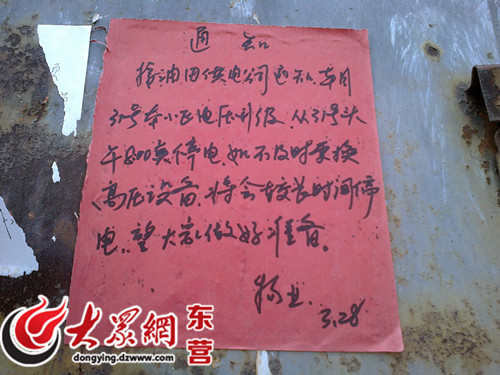 通知
接油田供电公司通知,本月
31号本小区电压升级,从31号上
午8:00点停电,如不及时更换
高压设备,将会较长时间停
电,望大家做好准备。
物业.
3.28
大众網
东营
dongying.dzwww.com